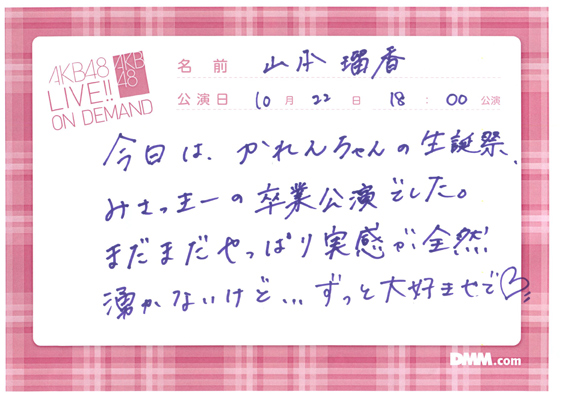 AKB48
LIVE!!
ON DEMAND
AKB
48
名前 山本 瑠香
公演日 10月 22日 18:00 公演
今日は、かれんちゃんの生誕祭、
みさっきーの卒業公演でした。
まだまだやっぱり実感が全然
湧かないけど...ずっと大好きやで♡
DMM.com